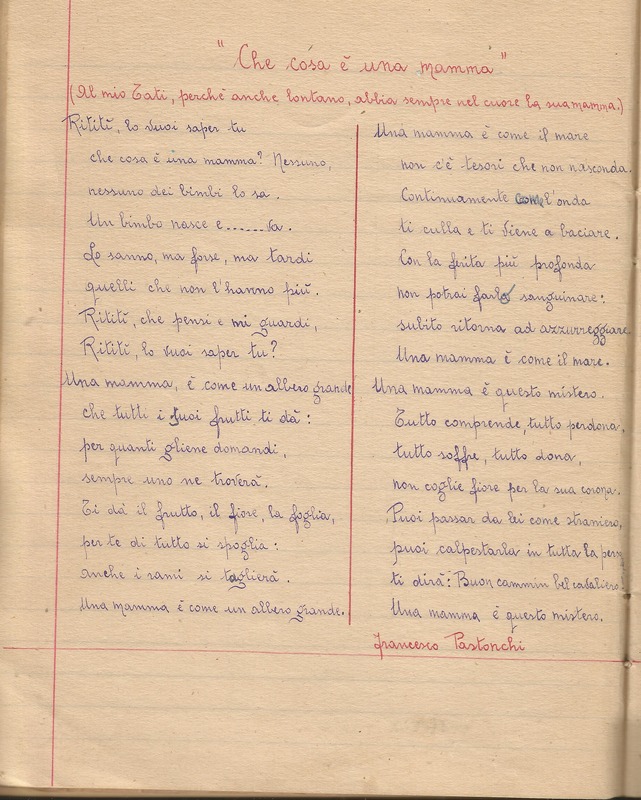 "Che cósa è una mamma"
(Al mio Tati, perchè anche lontano, abbia sempre nel cuore la sua mamma.)
Rititì, lo vuoi saper tu
che cosa è una mamma? Nessuno,
nessuno dei bimbi lo sa.
Un bimbo nasce e......va.
Lo sanno, ma forse, ma tardi
quelli che non l'hanno più.
Rititì, che pensi e mi guardi,
Rititì, lo vuoi saper tu?
Una mamma, è come un albero grande
che tutti i suoi frutti ti dà:
per quanti gliene domandi,
sempre uno ne troverà.
Ti dà il frutto, il fiore, la foglia,
per te di tutto si spoglia:
anche i rami si taglierà.
Una mamma è come un albero grande.
Una mamma è come il mare
non c'è tesori che non nasconda.
Continuamente come l'onda
ti culla e ti viene a baciare.
Con la ferita più profonda
non potrai farlo sanguinare:
subito ritorna ad azzurreggiare.
Una mamma è come il mare.
Una mamma è questo mistero.
Tutto comprende, tutto perdona,
tutto soffre, tutto dona,
non coglie fiore per la sua corona.
Puoi passar da lei come straniero,
puoi calpestarla in tutta la pers
ti dirà: Buon cammin bel cavaliero!
Una mamma è questo mistero.
Francesco Pastonchi